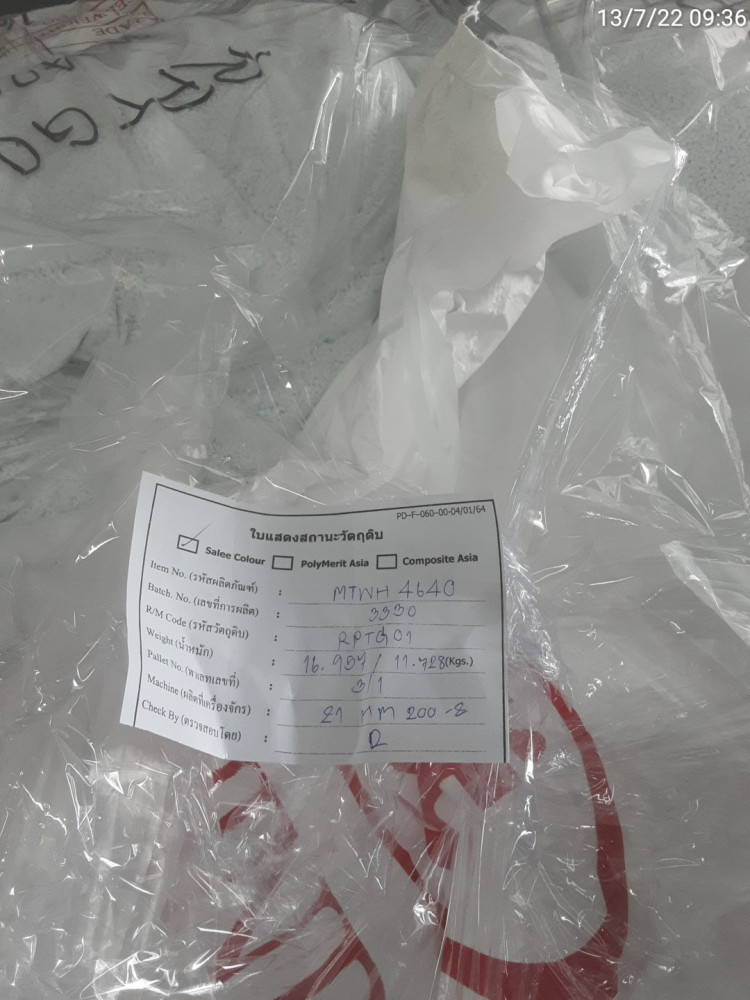 13/7/22 09:36
PD-F-060-00-04/01/64
ใบแสดงสถานะวัตถุดิบ
Salee Colour PolyMerit Asia Composite Asia
Item No. (รหัสผลิตภัณฑ์) : MTWH 4640
Batch. No. (เลขที่การผลิต) : 3330
R/M Code (รหัสวัตถุดิบ) : RPTG01
Weight (น้ำหนัก) : 16.959 / 11.728 (Kgs.)
Pallet No. (พาเลทเลขที่) : 3/1
Machine (ผลิตที่เครื่องจักร) : 21 HM 200-8
Check By (ตรวจสอบโดย) :